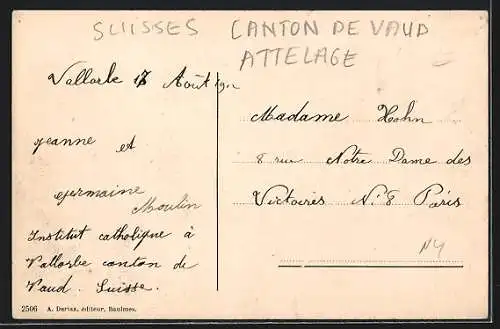 SUISSES CANTON DE VAUD
ATTELAGE
Vallorbe 17 Août 1912
Jeanne et
germaine
Moulin
Institut catholique à
Vallorbe canton de
Vaud. Suisse.
Madame Hohn
8 rue Notre Dame des
Victoires N: 8 Paris
NY
2506 A. Deriaz, éditeur, Baulmes.